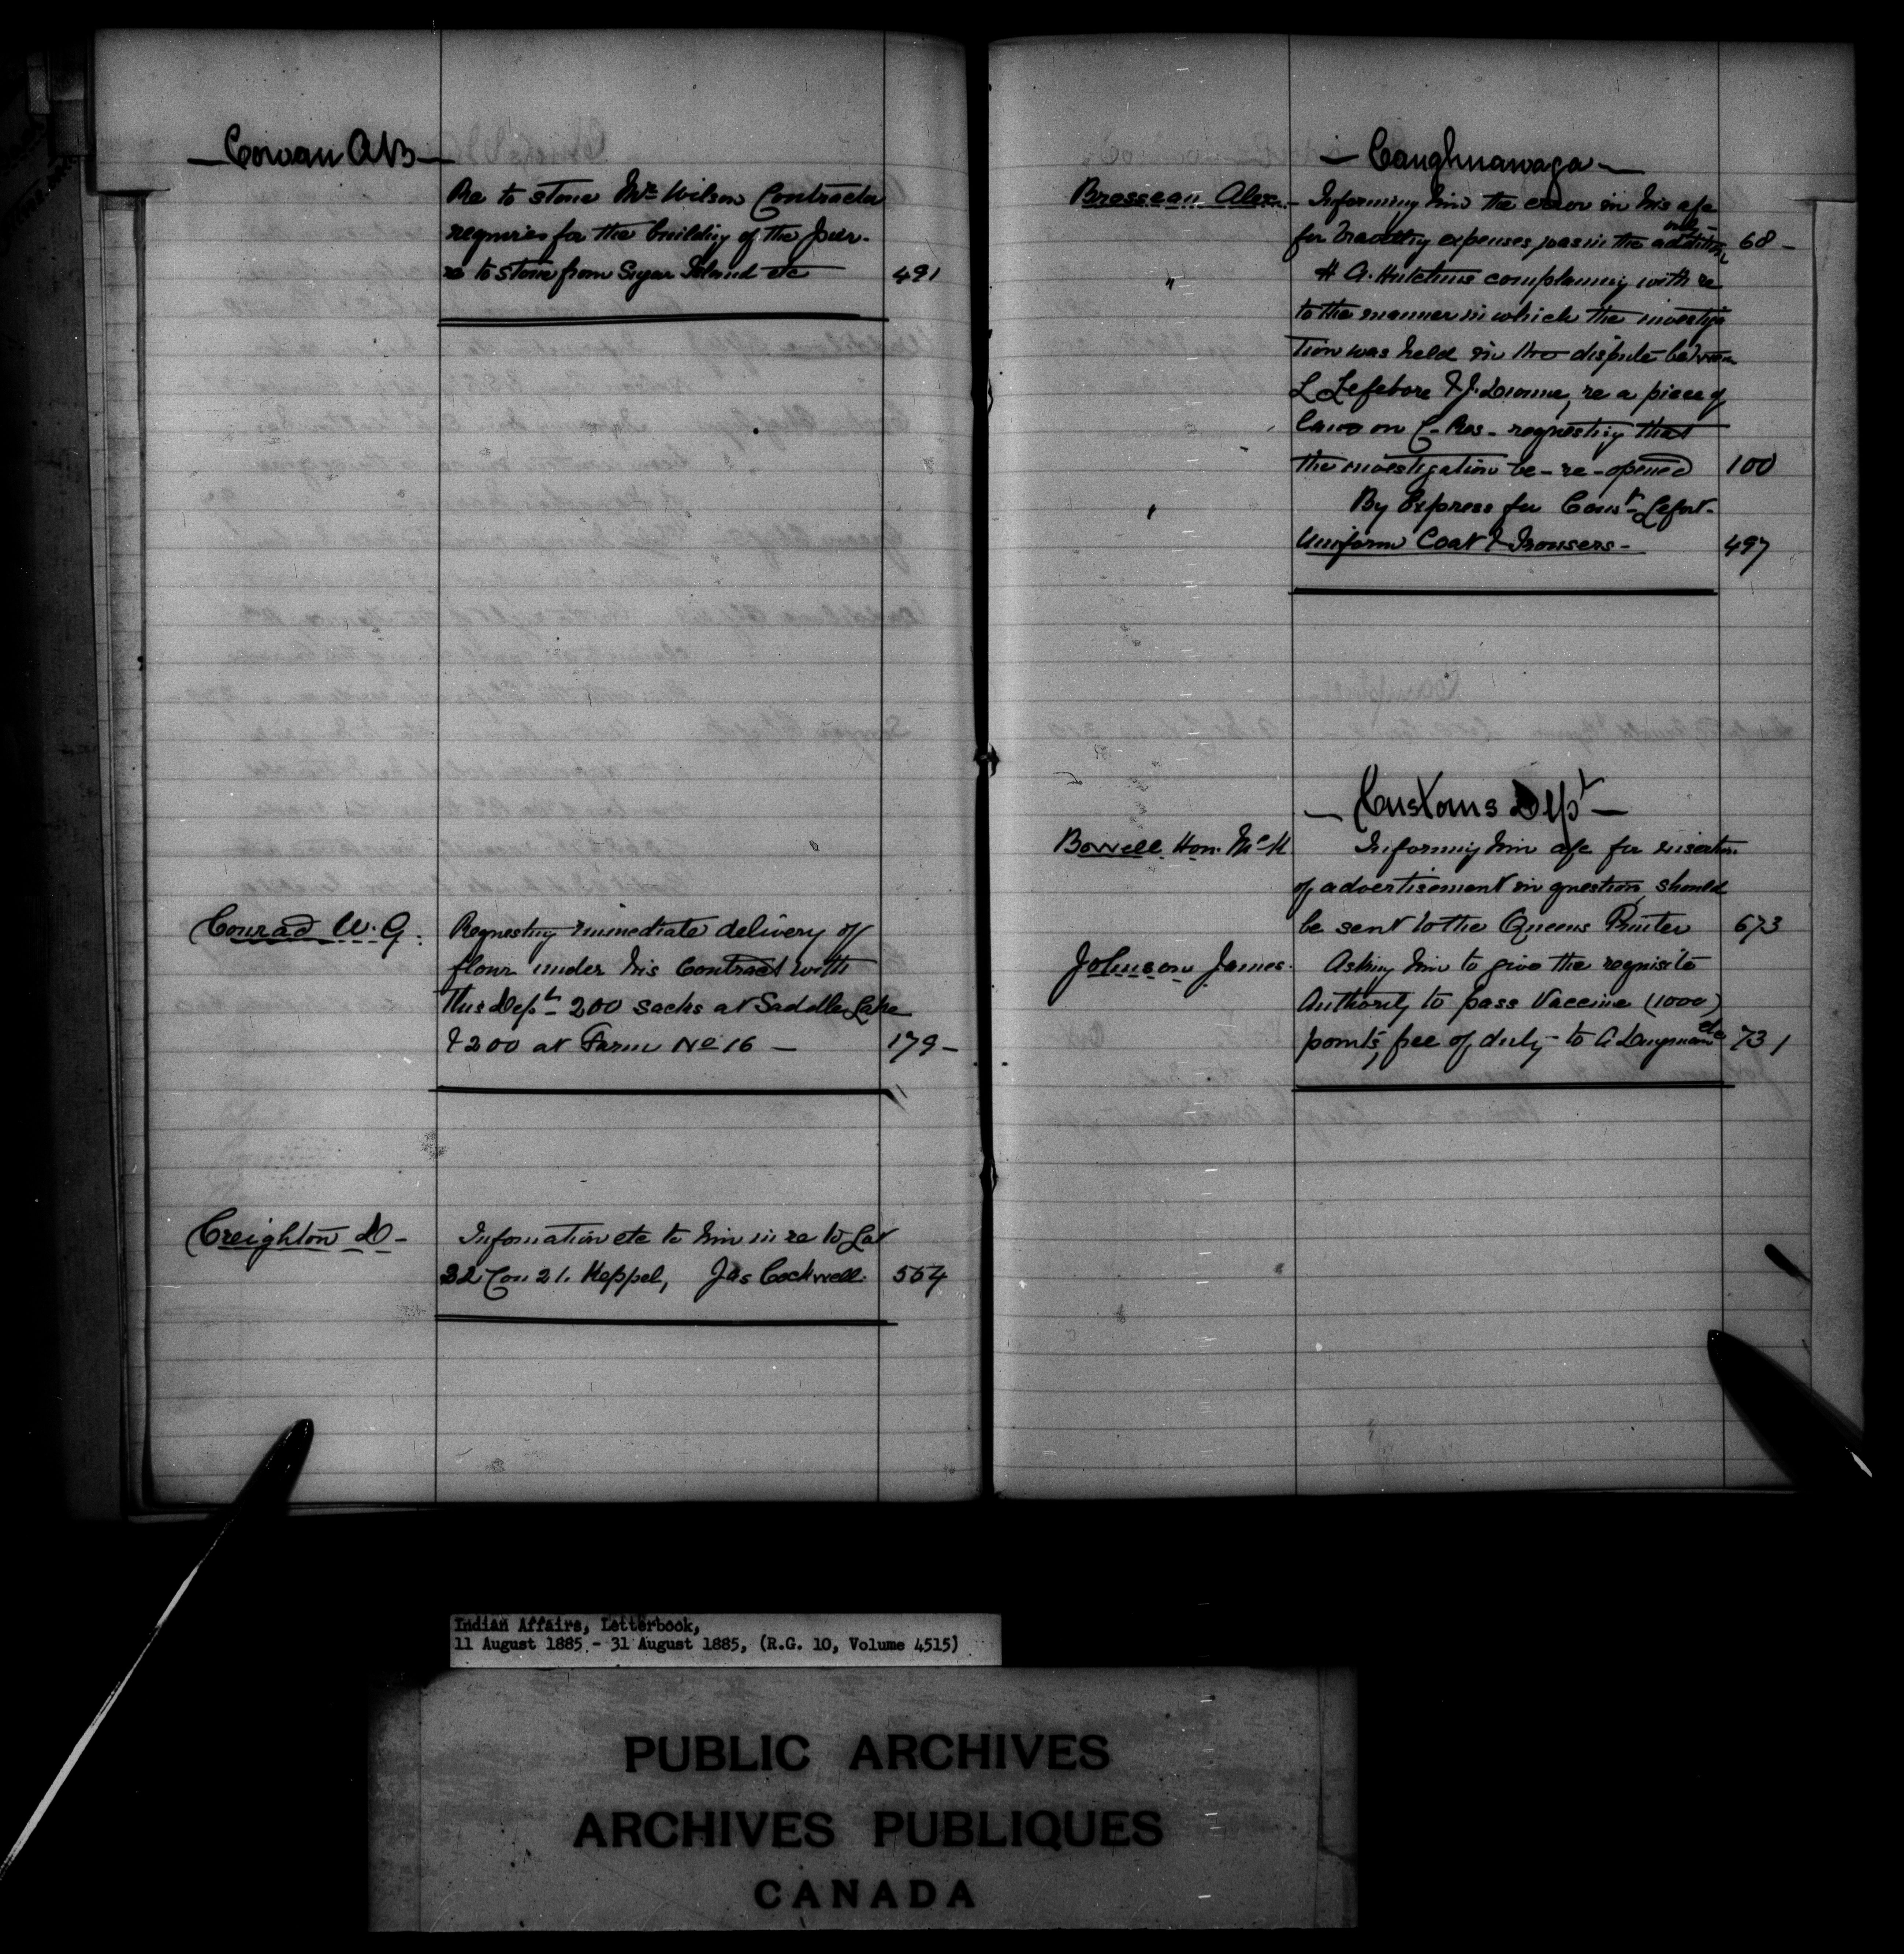 — Cowan A B —
Re to stone Mr Wilson Contractor
requires for the building of the pier.
re to stone from Sugar Island etc 491
Conrad W. G. Requesting immediate delivery of
flour under his Contract with
this Dept 200 sacks at Saddle Lake
& 200 at Farm No 16 — 179 —
Creighton D — Information etc to him in re to Lot
32 Con 21. Keppel, Jas Cockwell. 554
— Caughnawaga —
Brosseau Alex. — Informing him the error in his a/c
for travelling expenses was in the addition only — 68 —
" H A. Hutchins complaining with re
to the manner in which the investiga
tion was held in the dispute between
L Lefebvre & J. Diome, re a piece of
land on C. Res — requesting that
the investigation be — re-opened 100
" By Express for Const Lefort —
Uniform Coat & Trousers — 497
— Customs Dept —
Bowell Hon. McK Informing him a/c for insertion
of advertisement in question should
be sent to the Queens Printer 673
Johnson James. Asking him to give the requisite
Authority to pass Vaccine (1000)
points, free of duty — to A Longman etc 731
Indian Affairs, Letterbook,
11 August 1885 - 31 August 1885, (R.G. 10, Volume 4515)
PUBLIC ARCHIVES
ARCHIVES PUBLIQUES
CANADA